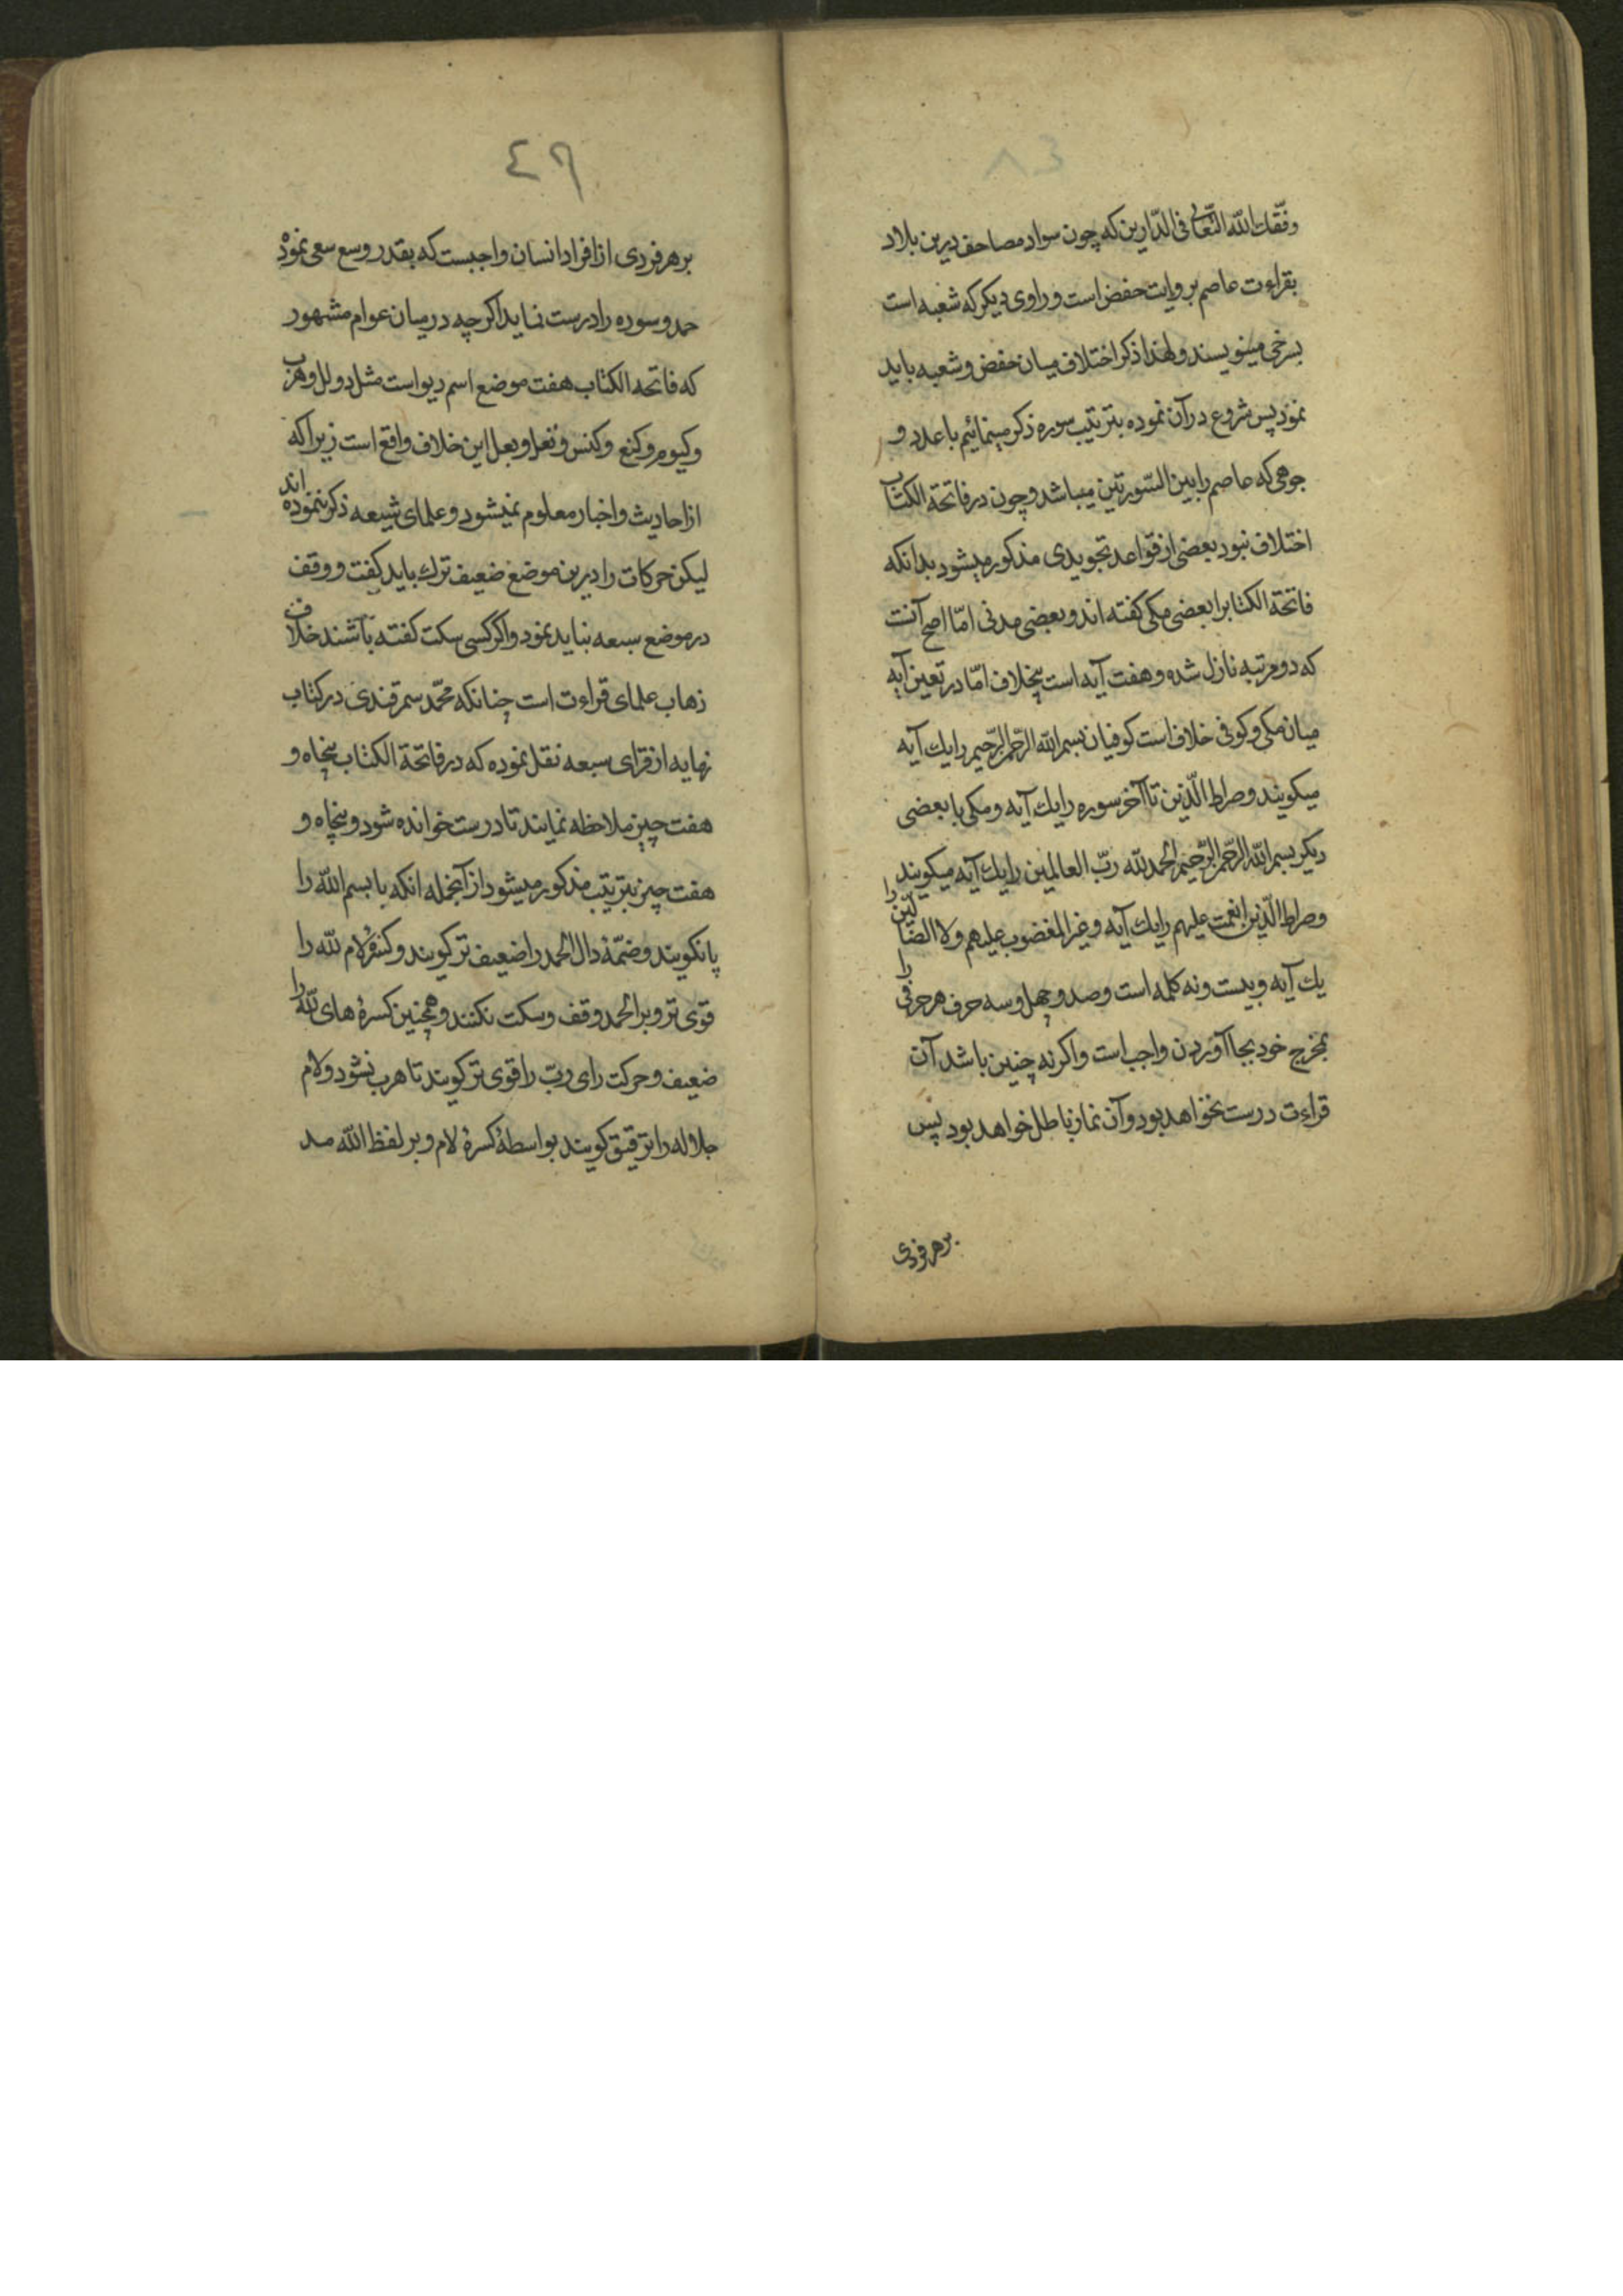 وفّقك الله التعالی فی الدّارین که چون سواد مصاحف درین بلاد
بقراءت عاصم بروایت حفص است و راوی دیکر که شعبه است
بسرخی مینویسند و لهذا ذکر اختلاف میان حفص و شعبه باید
نمود پس شروع در آن نموده بترتیب سوره ذکر مینمائیم با عدد و
جوهی که عاصم را بین السّورتین میباشد و چون در فاتحة الکتاب
اختلاف نبود بعضی از قواعد تجویدی مذکور میشود بدانکه
فاتحة الکتابرا بعضی مکی کفته اند و بعضی مدنی امّا اصح آنست
که دو مرتبه نازل شده و هفت آیه است بیخلاف امّا در تعین آیه
میان مکی و کوفی خلاف است کوفیان بسم الله الرّحمن الرّحیم را یك آیه
میکویند و صراط الّذین تا آخر سوره را یك آیه و مکی با بعضی
دیکر بسم الله الرّحمن الرّحیم الحمد لله ربّ العالمین را یك آیه میکویند
و صراط الّذین انعمت علیهم را یك آیه و غیر المغضوب علیهم ولا الضّالّین را
یك آیه و بیست و نه کلمه است و صد و چهل و سه حرف هر حرفی را
بمخرج خود بجا آوردن واجب است و اکر نه چنین باشد آن
قراءت درست نخواهد بود و آن نماز باطل خواهد بود پس
بر هر فردی
٤٩
بر هر فردی از افراد انسان واجبست که بقدر وسع سعی نموده
حمد و سوره را درست نماید اکر چه در میان عوام مشهور
که فاتحه الکتاب هفت موضع اسم دیو است مثل دولل و هرب
و کیوم و کنع و کنس و تعل و بعل این خلاف واقع است زیرا که
از احادیث و اخبار معلوم نمیشود و علمای شیعه ذکر ننموده اند
لیکن حرکات را درین موضع ضعیف ترك باید کفت و وقف
در موضع سبعه نباید نمود و اکر کسی سکت کفته باشند خلاف
ذهاب علمای قراءت است چنانکه محمّد سمرقندی در کتاب
نهایه از قرای سبعه نقل نموده که در فاتحة الکتاب پنجاه و
هفت چیز ملاحظه نمایند تا درست خوانده شود و پنجاه و
هفت چیز بترتیب مذکور میشود از آنجمله انکه با بسم الله را
پا نکویند و ضمّهٔ دال الحمد را ضعیف تر کویند و کسرهٔ لام لله را
قوی تر و بر الحمد وقف و سکت نکنند و همچنین کسرهٔ های لله را
ضعیف و حرکت رای ربّ را قوی تر کویند تا هرب نشود و لام
جلاله را ترقیق کویند بواسطهٔ کسرهٔ لام و بر لفظ الله مد